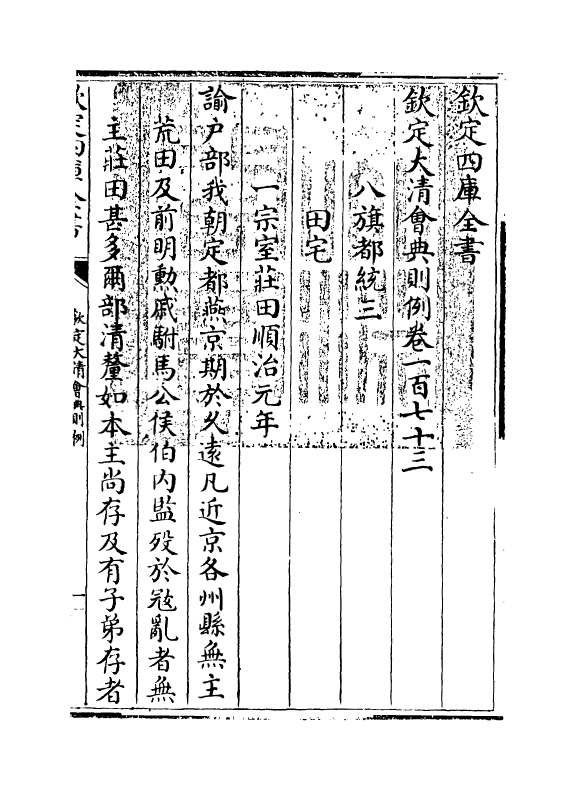 欽定四庫全書
欽定大清會典則例卷一百七十三
八旗都統三
田宅
一宗室莊田順治元年
諭户部我朝定都燕京期於久遠凡近京各州縣無主
荒田及前明勲戚駙馬公侯伯内監歿於冦亂者無
主莊田甚多爾部清釐如本主尚存及有子弟存者
欽定四庫全書
欽定大清會典則例
一